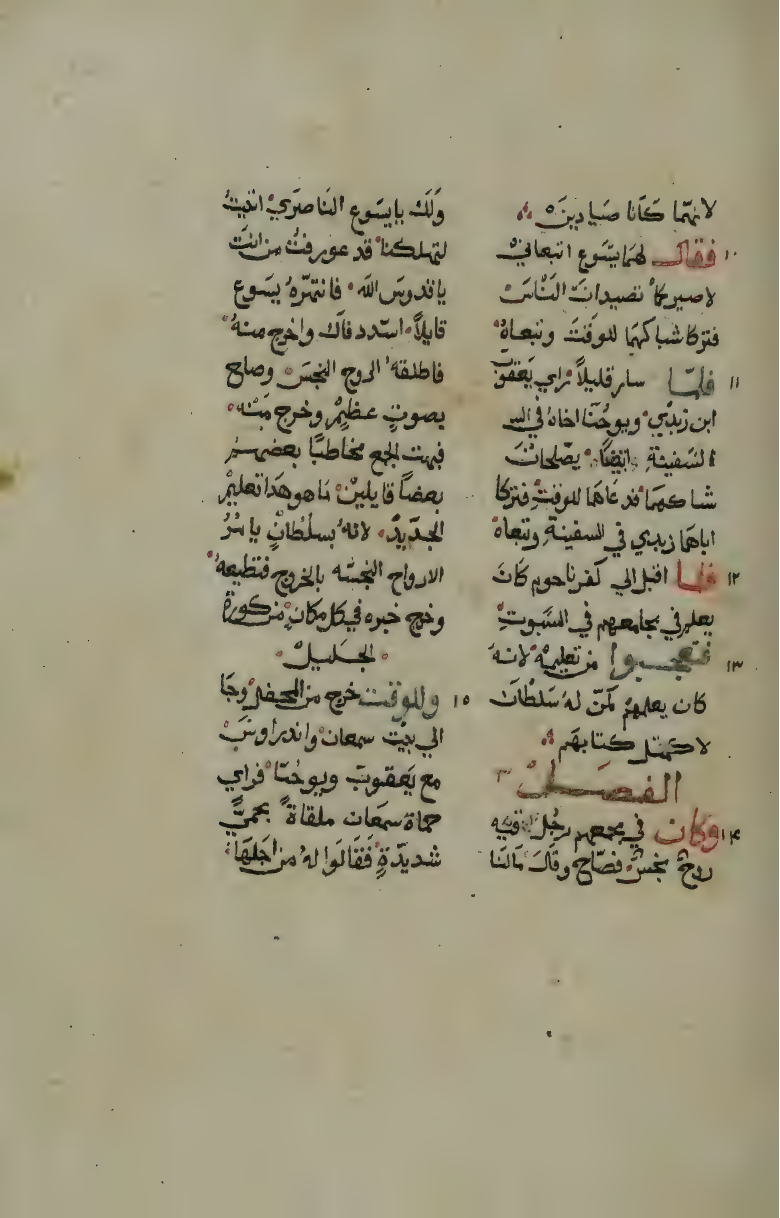 لانهما كانا صيادين
١٠ فقال لهما يسوع اتبعاني
لاصيركما تصيدان الناس
فتركا شباكهما للوقت وتبعاه
١١ فلما سار قليلاً راي يعقوب
ابن زبدي ويوحنا اخاه في الس
السفينة ايضاً يصلحان
شباكهما فدعاهما للوقت فتركا
اباهما زبدي في السفينة وتبعاه
١٢ فلما اقبل الي كفرناحوم كان
يعلم في مجامعهم في السبوت
١٣ فتعجبوا من تعليمه لانه
كان يعلمهم كمن له سلطان
لا كمثل كتابهم
الفصل ٣
١٤ وكان في مجمعهم رجل فيه
روح نجس فصاح وقال مالنا
ولك يا يسوع الناصري اتيت
لتهلكنا قد عرفت من انت
يا قدوس الله فانتهره يسوع
قايلاً اسدد فاك واخرج منه
فاطلقه الروح النجس وصاح
بصوت عظيم وخرج منه
فبهت الجمع مخاطبًا بعضهم
بعضاً قايلين ما هو هدا تعليم
الجديد لانه بسلطان يامر
الارواح النجسه بالخروج فتطيعه
وخرج خبره في كل مكان من كورة
الجليل
١٥ وللوقت خرج من المحفل وجا
الي بيت سمعان واندراوس
مع يعقوب ويوحنا فراي
حماة سمعان ملقاة بحمي
شديدة فقالوا له من اجلها